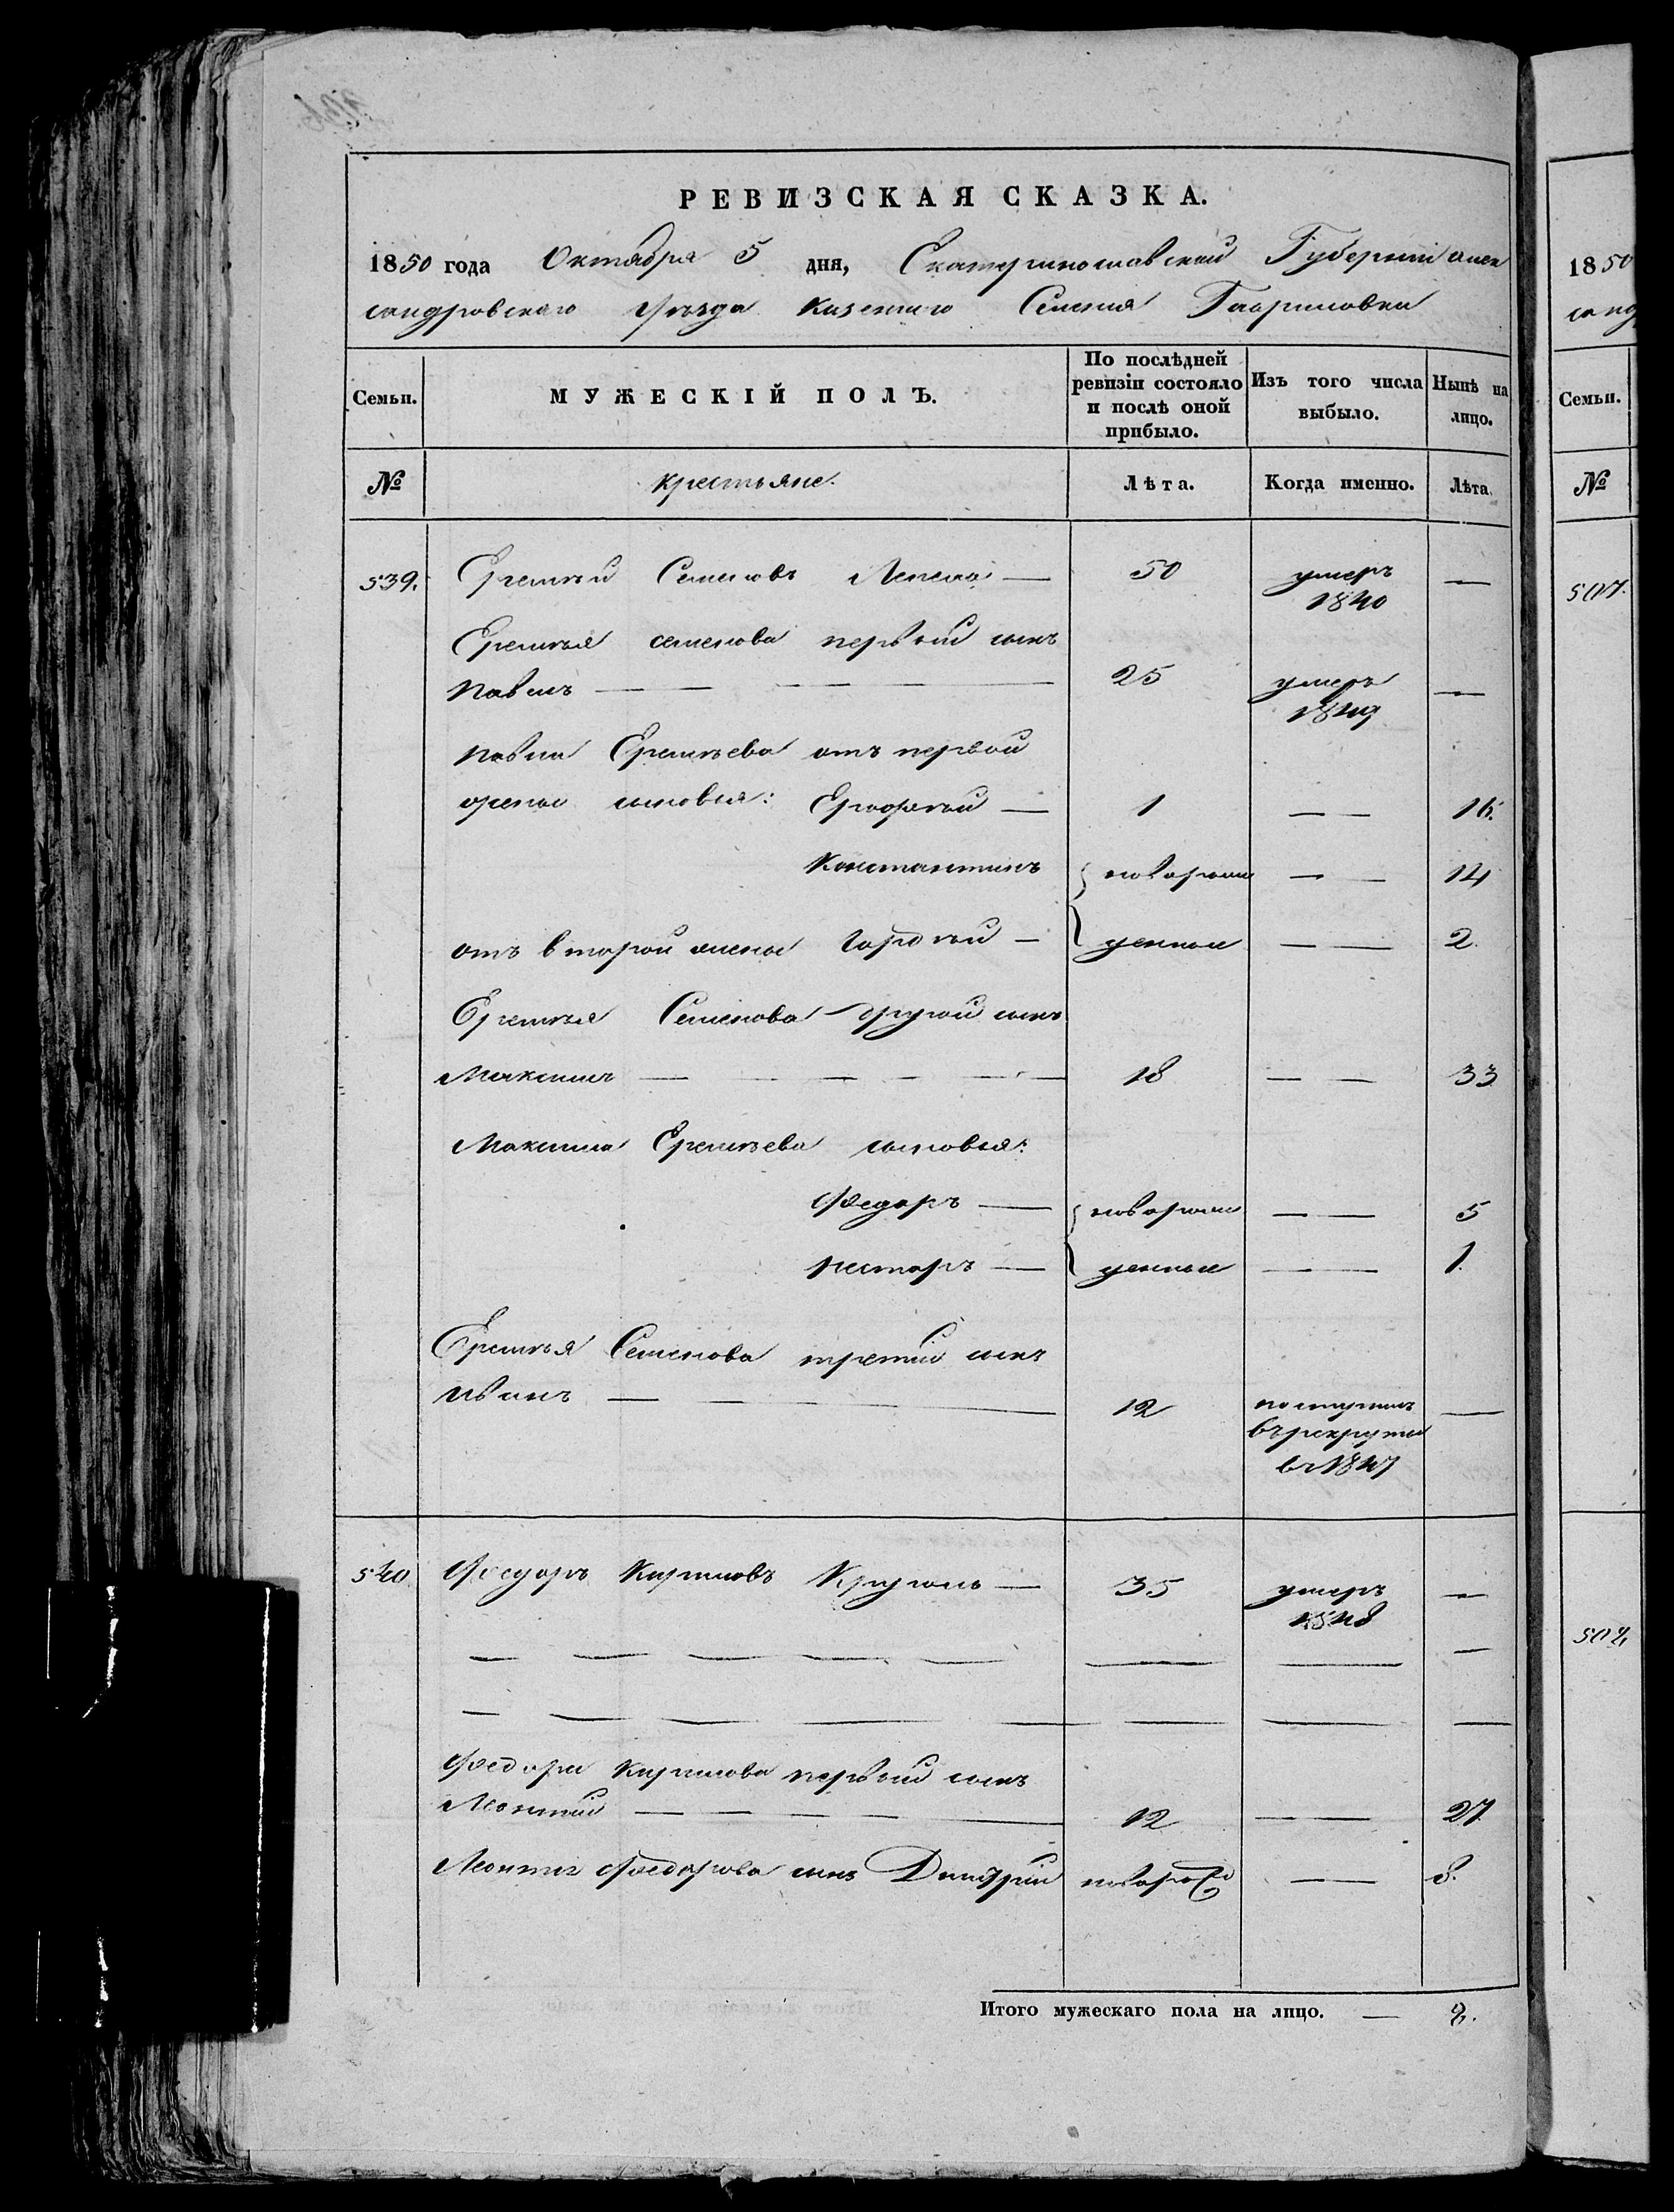 РЕВИЗСКАЯ СКАЗКА.
1850 года Октября 5 дня, Екатеринославской Губерніи Алек
сандровскаго Уѣзда Казеннаго Селенія Гавриловки
Семьи. МУЖЕСКІЙ ПОЛЪ. По послѣдней ревизіи состояло и послѣ оной прибыло. Изъ того числа выбыло. Нынѣ на лицо.
№ Крестьяне. Лѣта. Когда именно. Лѣта.
539. Еремѣй Семеновъ Лепеха — 50 умеръ —
1840
Еремѣя семенова первый сынъ
Павелъ — 25 умеръ —
1849
Павла Еремѣева отъ первой
жены сыновья: Ерофѣй — 1 — 16.
Константинъ } новорож — 14
отъ второй жены Гордѣй — } денные — 2.
Еремѣя Семенова другой сынъ
Максимъ — 18 — 33
Максима Еремѣева сыновья:
Федоръ — } новорож — 5
Несторъ — } денные — 1.
Еремѣя Семенова третий сынъ
Иванъ — 12 поступилъ —
въ рекруты
въ 1847
540 Федоръ Кириловъ — 35 умеръ —
1848
Федора Кирилова первый сынъ
Леонтій — 12 — 27.
Леонтія Федорова сынъ Дмитрій новорож — 8.
Итого мужескаго пола на лицо. — 8.
1850
санд
Семьи.
№
507.
508.